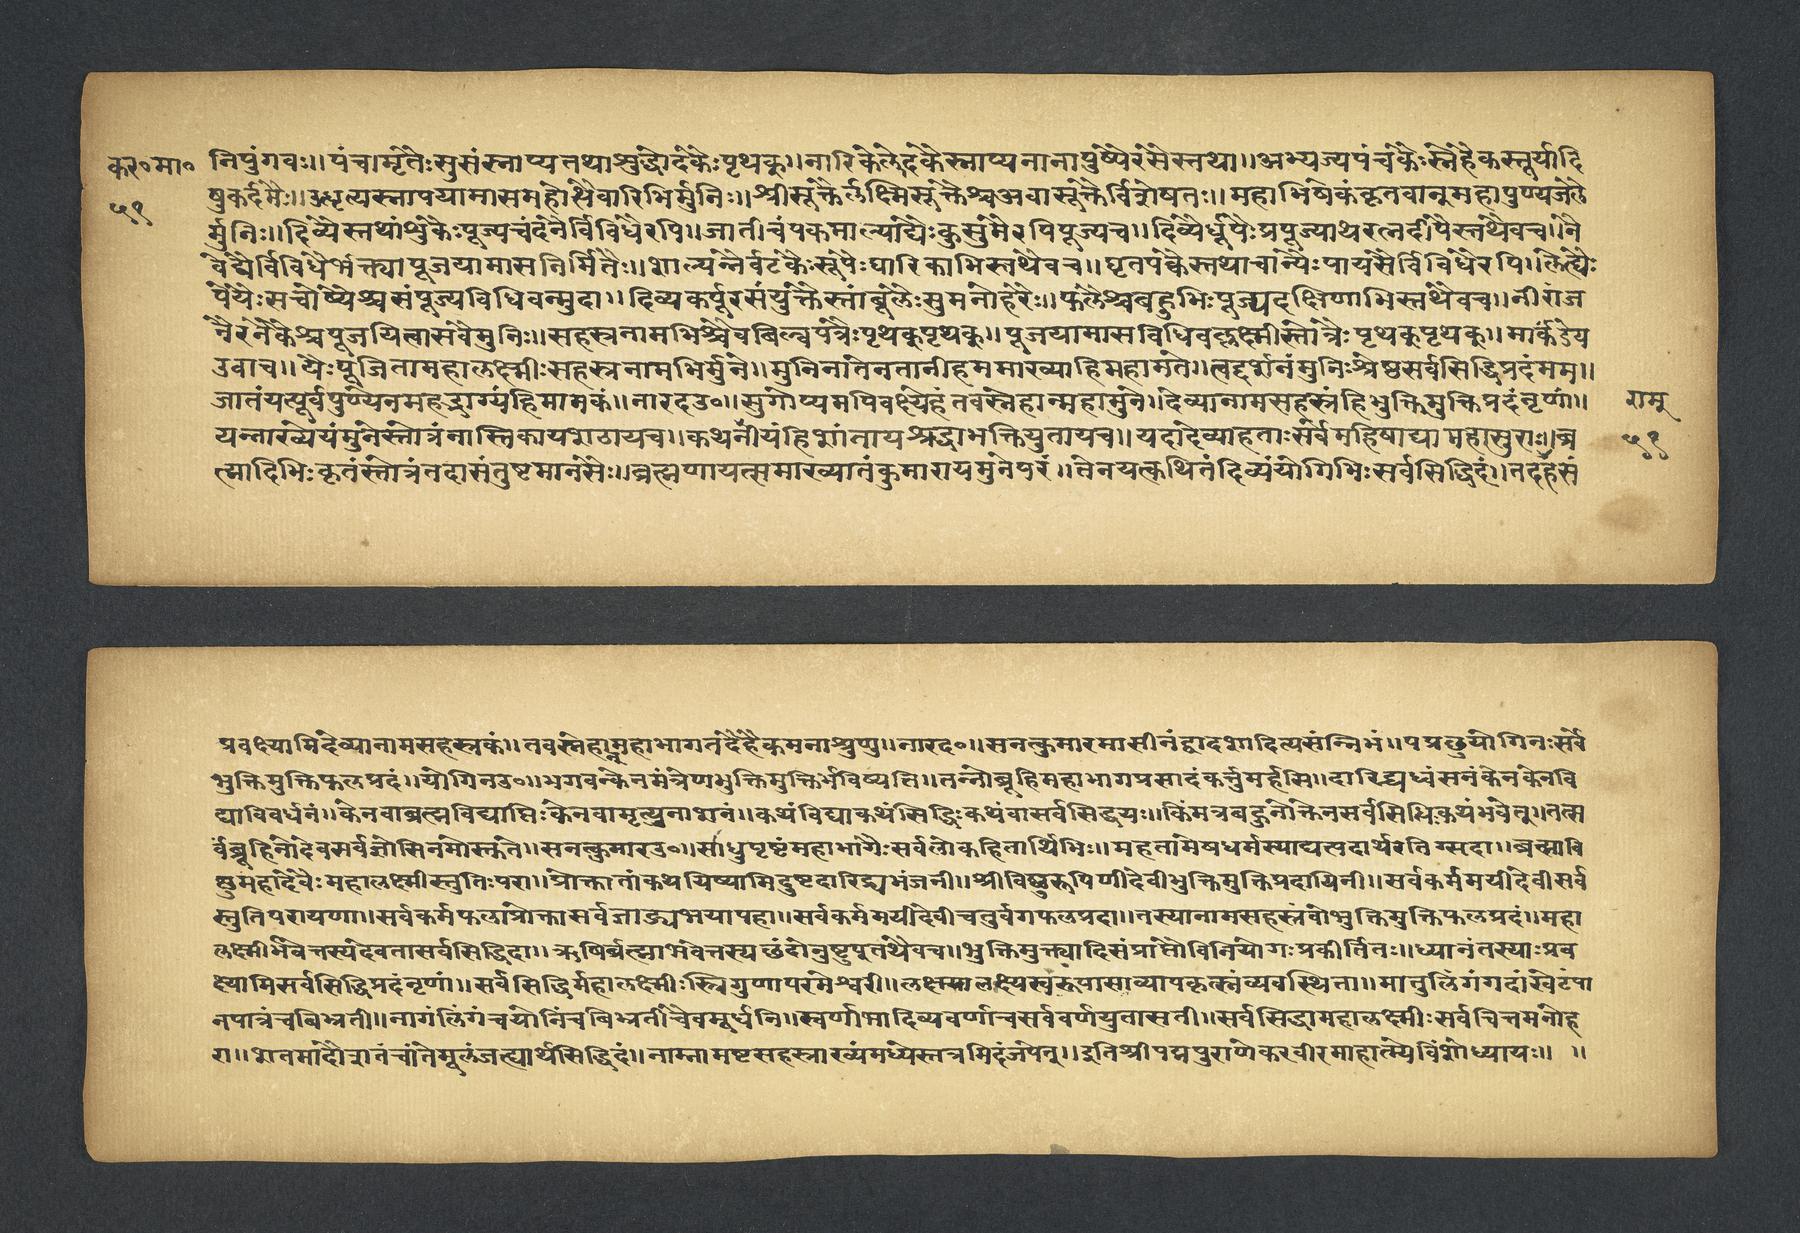 कर०मा०
५१
निपुंगवः॥पंचामृतैःसुसंस्नाप्यतथाशुद्धोदकैःपृथक्॥नारिकेलोदकेस्नाप्यनानापुष्पैरसैस्तथा॥अभ्यज्यपंचकैःस्नेहैकस्तूर्यादि
षुकर्दमैः॥स्नापयामासमहोत्थैवारिभिर्मुनिः॥श्रीसूक्तैर्लक्ष्मिसूक्तैश्चअवासूक्तैर्विशेषतः॥महाभिषेकंकृतवान्महापुण्यजलै
र्मुनिः॥दिव्यैस्तथांशुकैःपूज्यचंदनैर्विविधैरपि॥जातीचंपकमाल्याद्यैःकुसुमैरपिपूज्यच॥दिव्यैर्धूपैःप्रपूज्याथरत्नदीपैस्तथैवच॥नै
वेद्यैर्विविधैर्भक्त्यापूजयामासनिर्मितैः॥शाल्यन्नैर्वटकैःसूपैःघारिकाभिस्तथैवच॥घृतपक्कैस्तथाचान्यैःपायसैर्विविधैरपि॥लेह्यैः
पेयैःसचोष्यैश्चसंपूज्यविधिवन्मुदा॥दिव्यकर्पूरसंयुक्तैस्तांबूलैःसुमनोहरैः॥फलैश्चबहुभिःपूज्यदक्षिणाभिस्तथैवच॥नीराज
नैरनेकैश्चपूजयित्वासवैमुनिः॥सहस्रनामभिश्चैवबिल्वपत्रैःपृथक्पृथक्॥पूजयामासविधिवल्लक्ष्मीस्तोत्रैःपृथक्पृथक्॥मार्कंडेय
उवाच॥यैःपूजितामहालक्ष्मीःसहस्रनामभिर्मुने॥मुनिनातेनतानीहममाख्याहिमहामते॥त्वद्दर्शनंमुनिःश्रेष्ठसर्वसिद्धिप्रदंमम॥
जातंयत्पूर्वपुण्येनमहद्भाग्यंहिमामकं॥नारदउ०॥सुगोप्यमपिवक्ष्येहंतवस्नेहान्महामुने॥देव्यानामसहस्रंहिभुक्तिमुक्तिप्रदंनृणां॥
यन्नाख्येयंमुनेस्तोत्रंनास्तिकायशठायच॥कथनीयंहिशांतायश्रद्धाभक्तियुतायच॥यदादेव्याहताःसर्वेमहिषाद्यामहासुराः॥ब्र
ह्मादिभिःकृतंस्तोत्रंतदासंतुष्टमानसैः॥ब्रह्मणायत्समाख्यातंकुमारायमुनेपरं॥तेनयत्कथितंदिव्यंयोगिभिःसर्वसिद्धिदं॥तदहंसं
रामु
५१
प्रवक्ष्यामिदेव्यानामसहस्रकं॥तवस्नेहान्महाभागतदेहैकमनाशृणु॥नारद०॥सनत्कुमारमासीनंद्वादशादित्यसंन्निभं॥पप्रछुर्योगिनःसर्वे
भुक्तिमुक्तिफलप्रदं॥योगिनउ०॥भगवन्केनमंत्रेणभुक्तिमुक्तिर्भविष्यति॥तन्नोब्रूहिमहाभागप्रसादंकर्तुमर्हसि॥दारिद्र्यध्वंसनंकेनकेनवि
द्याविवर्धनं॥केनवाब्रह्मविद्याप्तिःकेनवामृत्युनाशनं॥कथंविद्याकथंसिद्धिःकथंवासर्वसिद्धयः॥किमत्रबहुनोक्तेनसर्वसिधिःकथंभवेत्॥तत्स
र्वंब्रूहिनोदेवसर्वज्ञोसिनमोस्तुते॥सनत्कुमारउ०॥साधुपृष्टंमहाभागैःसर्वलोकहितार्थिभिः॥महतामेषधर्मस्याद्यत्पदार्थरतिःसदा॥ब्रह्मावि
ष्णुमहादेवैःमहालक्ष्मीस्तुतिःपरा॥प्रोक्तातांकथयिष्यामिदुष्टदारिद्र्यभंजनी॥श्रीविष्णुरूपिणीदेवीभुक्तिमुक्तिप्रदायिनी॥सर्वकर्ममयीदेवीसर्व
स्तुतिपरायणा॥सर्वकर्मफलाप्रोक्तासर्वजाड्यभयापहा॥सर्वकर्ममयीदेवीचतुर्वर्गफलप्रदा॥तस्यानामसहस्रंवोभुक्तिमुक्तिफलप्रदं॥महा
लक्ष्मीर्भवेत्तस्यदेवतासर्वसिद्धिदा॥ऋषिर्ब्रह्माभवेत्तस्यछंदोनुष्टुप्तथैवच॥भुक्तिमुक्त्यादिसंप्राप्तौविनियोगःप्रकीर्तितः॥ध्यानंतस्याःप्रव
क्ष्यामिसर्वसिद्धिप्रदंनृणां॥सर्वसिद्धिर्महालक्ष्मीःत्रिगुणापरमेश्वरी॥लक्ष्यालक्ष्यस्वरूपासाव्यापकृत्स्नंव्यवस्थिता॥मातुलिंगंगदांखेटंपा
नपात्रंचबिभ्रती॥नागंलिंगंचयोनिंचबिभ्रतींचैवमूर्धनि॥स्वर्णाभादिव्यवर्णाचसर्ववर्णयुवासती॥सर्वसिद्धामहालक्ष्मीःसर्वचित्तमनोह
रा॥शतमादौशतंचांतेमूलंजत्प्यार्थसिद्धिदं॥नाम्नामष्टसहस्राख्यंमध्येस्तत्रमिदंजपेत्॥इतिश्रीपद्मपुराणेकरवीरमाहात्म्येविंशोध्यायः॥॥